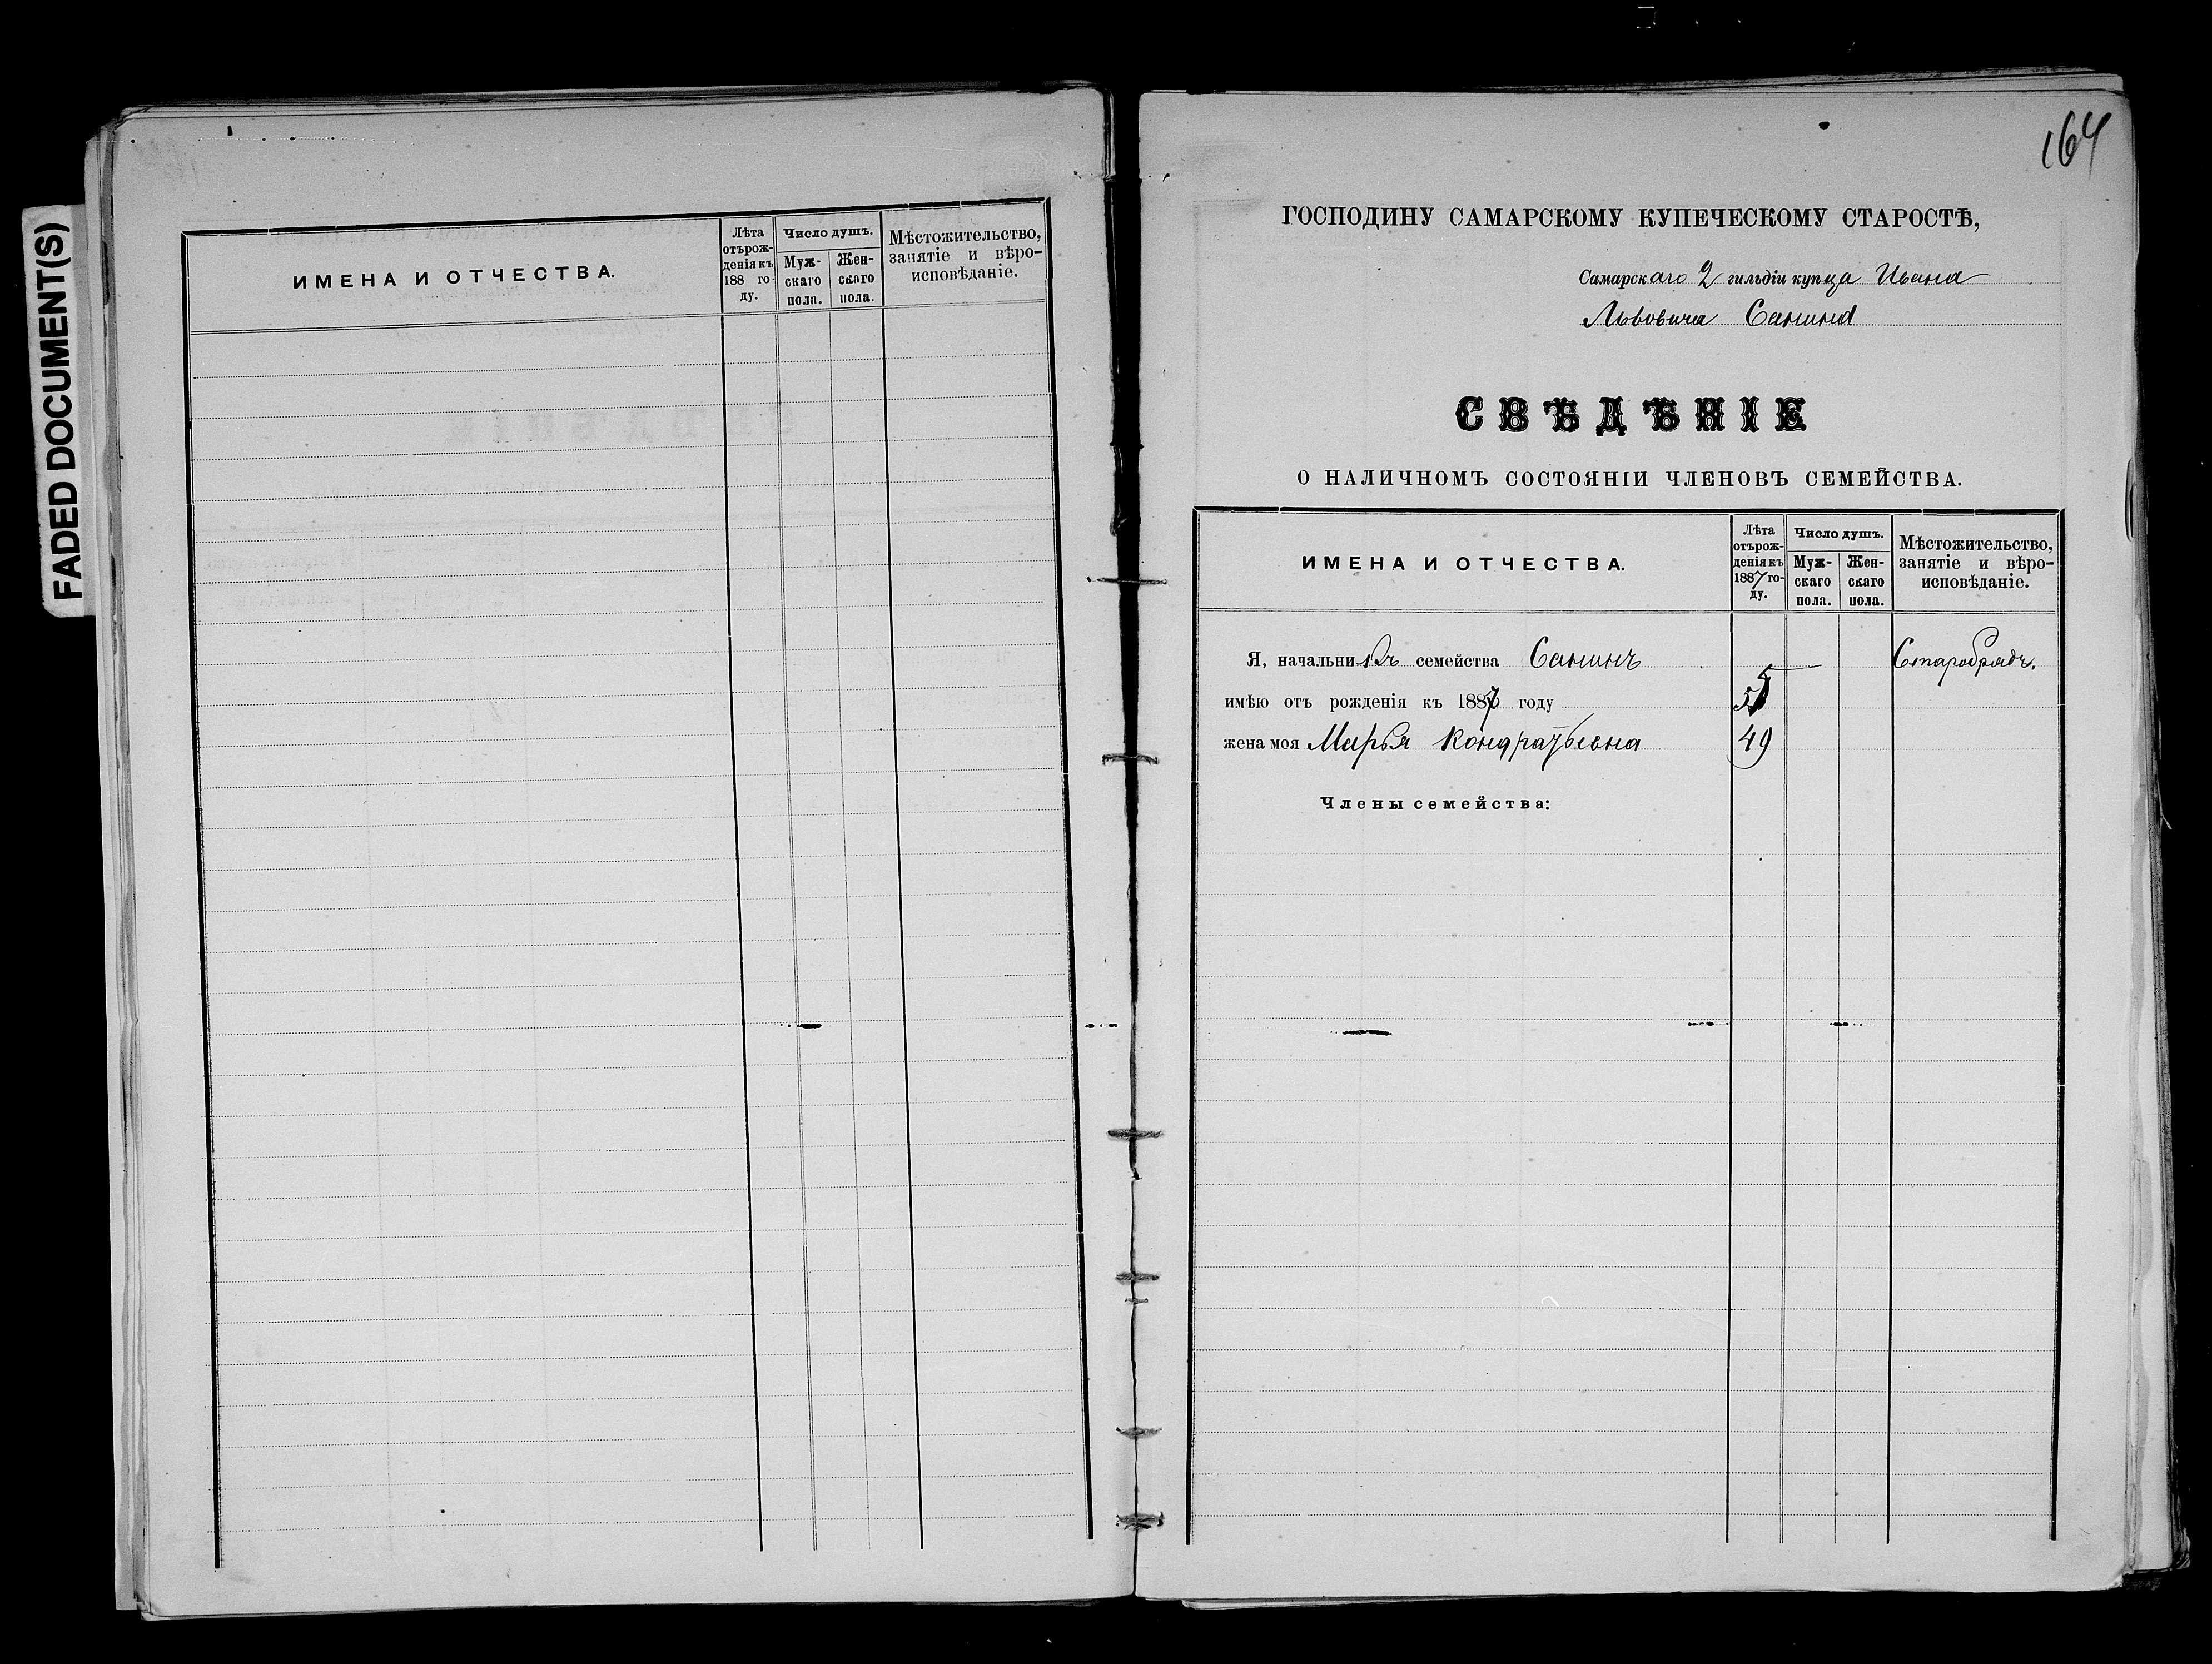 FADED DOCUMENT(S)
ИМЕНА И ОТЧЕСТВА.
Лѣта отърож-денія къ 188 го-ду.
Число душъ.
Муж-скаго пола.
Жен-скаго пола.
Мѣстожительство, занятіе и вѣро-исповѣданіе.
164
ГОСПОДИНУ САМАРСКОМУ КУПЕЧЕСКОМУ СТАРОСТѢ,
Самарскаго 2 гильдіи купца Ивана
Львовича Санина
СВѢДѢНІЕ
О НАЛИЧНОМЪ СОСТОЯНІИ ЧЛЕНОВЪ СЕМЕЙСТВА.
ИМЕНА И ОТЧЕСТВА.
Лѣта отърож-денія къ 1887 го-ду.
Число душъ.
Муж-скаго пола.
Жен-скаго пола.
Мѣстожительство, занятіе и вѣро-исповѣданіе.
Я, начальникъ семейства Санинъ Старобрядъ.
имѣю отъ рожденія къ 1887 году 55
жена моя Марья Кондратьевна 49
Члены семейства: